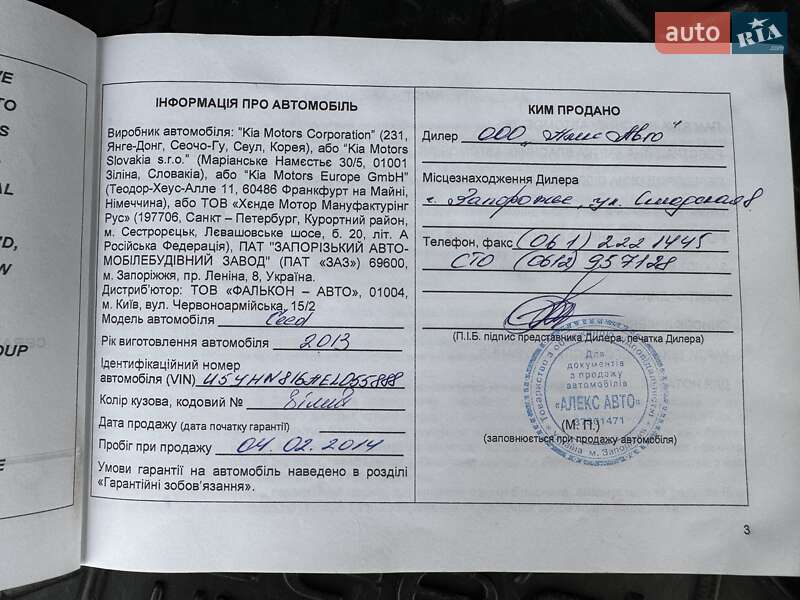 auto RIA
.com
VE
TO
S
AL
D,
W
OUP
E
ІНФОРМАЦІЯ ПРО АВТОМОБІЛЬ
Виробник автомобіля: "Kia Motors Corporation" (231,
Янге-Донг, Сеочо-Гу, Сеул, Корея), або "Kia Motors
Slovakia s.r.o." (Маріанське Намєстьє 30/5, 01001
Зіліна, Словакія), або "Kia Motors Europe GmbH"
(Теодор-Хеус-Алле 11, 60486 Франкфурт на Майні,
Німеччина), або ТОВ «Хєнде Мотор Мануфактурінг
Рус» (197706, Санкт – Петербург, Курортний район,
м. Сестрорецьк, Лєвашовське шосе, б. 20, літ. А
Російська Федерація), ПАТ "ЗАПОРІЗЬКИЙ АВТО-
МОБІЛЕБУДІВНИЙ ЗАВОД" (ПАТ «ЗАЗ») 69600,
м. Запоріжжя, пр. Леніна, 8, Україна.
Дистриб'ютор: ТОВ «ФАЛЬКОН – АВТО», 01004,
м. Київ, вул. Червоноармійська, 15/2
Модель автомобіля Ceed
Рік виготовлення автомобіля 2013
Ідентифікаційний номер
автомобіля (VIN) U5YHN816AEL055888
Колір кузова, кодовий № білий
Дата продажу (дата початку гарантії)
Пробіг при продажу 04.02.2014
Умови гарантії на автомобіль наведено в розділі
«Гарантійні зобов'язання».
КИМ ПРОДАНО
Дилер ООО „Алекс Авто"
Місцезнаходження Дилера
г. Запорожье, ул.
Телефон, факс (061) 222 1445
СТО (0612) 957128
(П.І.Б. підпис представника Дилера, печатка Дилера)
Для
документів
з продажу
автомобілів
«АЛЕКС АВТО»
(М. П.)
(заповнюється при продажу автомобіля)
3